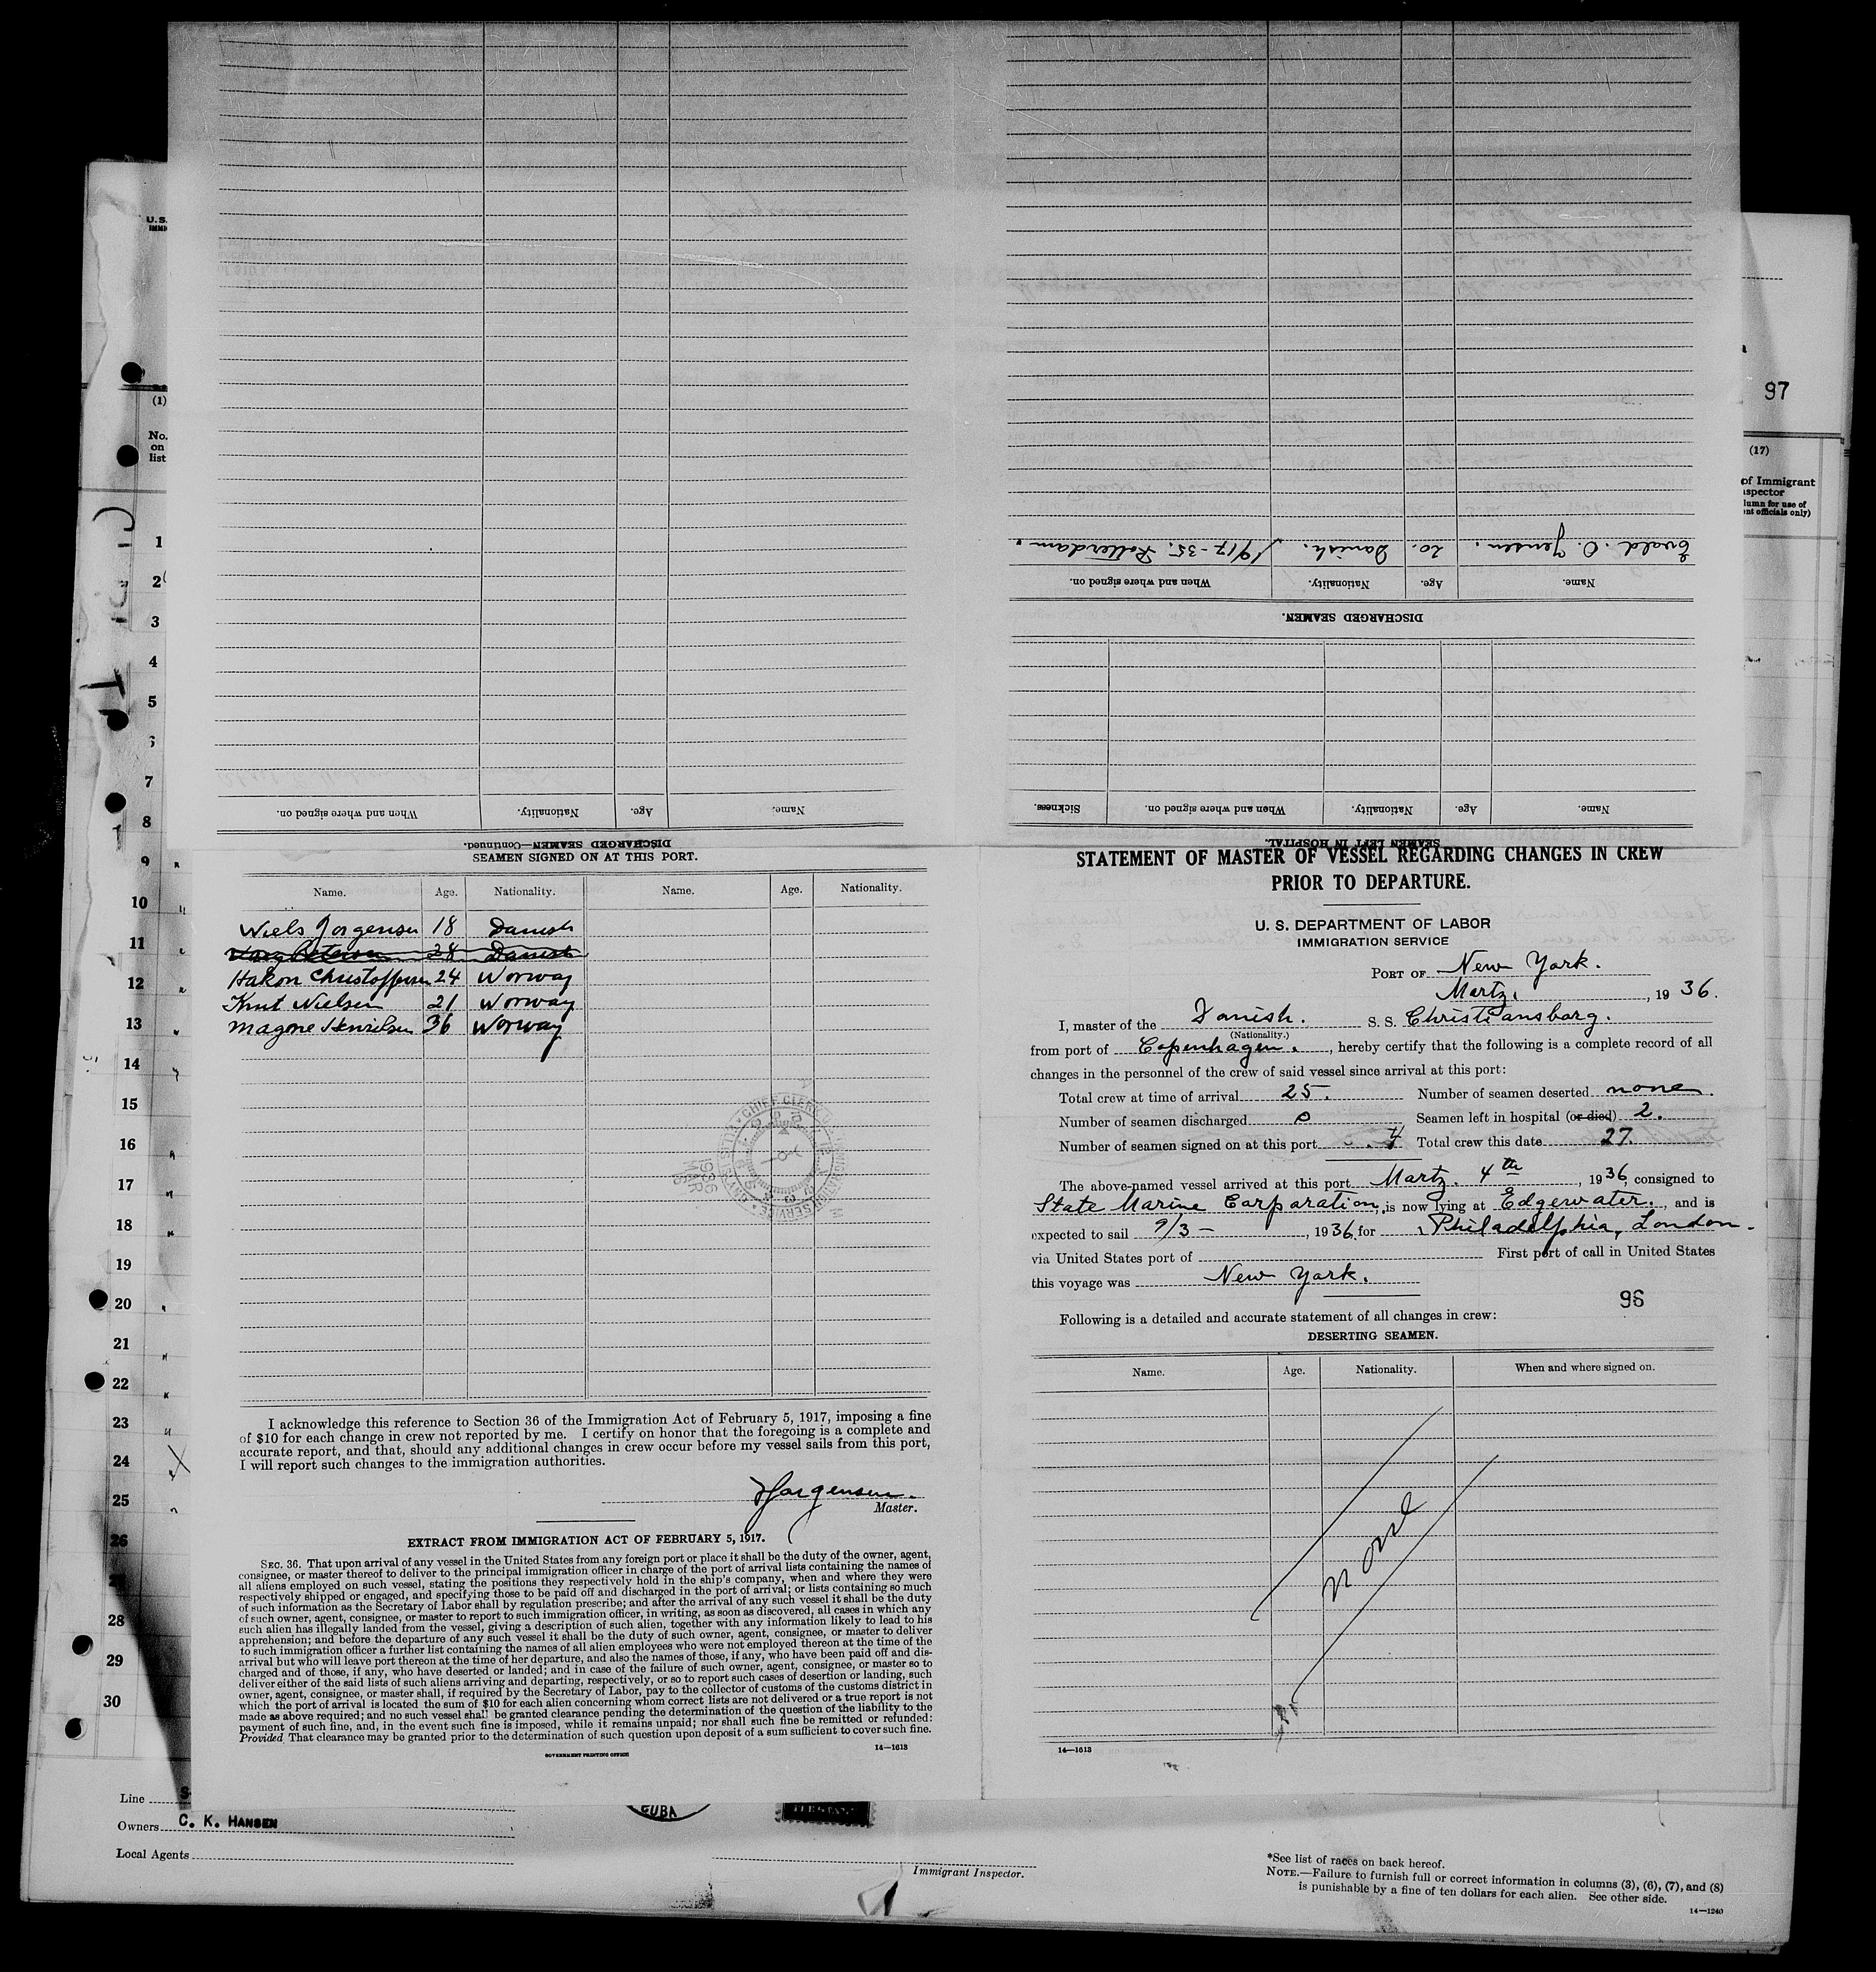 U.S.
IMMI
(1)
No.
on
list
1
2
3
4
5
6
7
8
9
10
11
12
13
14
15
16
17
18
19
20
21
22
23
24
25
26
28
29
30
97
(17)
of Immigrant
spector
lumn for use of
nt officials only)
Evald. O. Jensen. 20. Danish. 19/7-35. Rotterdam.
Name. Age. Nationality. When and where signed on.
DISCHARGED SEAMEN.
Name. Age. Nationality. When and where signed on. Sickness.
SEAMEN LEFT IN HOSPITAL.
Name. Age. Nationality. When and where signed on.
DISCHARGED SEAMEN—Continued.
SEAMEN SIGNED ON AT THIS PORT.
Name. Age. Nationality. Name. Age. Nationality.
Niels Jorgensen 18 Danish
28 Danish
Hakon Christoffersen 24 Norway
Knut Nielsen 21 Norway
Magone Henrilsen 36 Norway
I acknowledge this reference to Section 36 of the Immigration Act of February 5, 1917, imposing a fine
of $10 for each change in crew not reported by me. I certify on honor that the foregoing is a complete and
accurate report, and that, should any additional changes in crew occur before my vessel sails from this port,
I will report such changes to the immigration authorities.
Jorgensen.
Master.
EXTRACT FROM IMMIGRATION ACT OF FEBRUARY 5, 1917.
SEC. 36. That upon arrival of any vessel in the United States from any foreign port or place it shall be the duty of the owner, agent,
consignee, or master thereof to deliver to the principal immigration officer in charge of the port of arrival lists containing the names of
all aliens employed on such vessel, stating the positions they respectively hold in the ship's company, when and where they were
respectively shipped or engaged, and specifying those to be paid off and discharged in the port of arrival; or lists containing so much
of such information as the Secretary of Labor shall by regulation prescribe; and after the arrival of any such vessel it shall be the duty
of such owner, agent, consignee, or master to report to such immigration officer, in writing, as soon as discovered, all cases in which any
such alien has illegally landed from the vessel, giving a description of such alien, together with any information likely to lead to his
apprehension; and before the departure of any such vessel it shall be the duty of such owner, agent, consignee, or master to deliver
to such immigration officer a further list containing the names of all alien employees who were not employed thereon at the time of the
arrival but who will leave port thereon at the time of her departure, and also the names of those, if any, who have been paid off and dis-
charged and of those, if any, who have deserted or landed; and in case of the failure of such owner, agent, consignee, or master so to
deliver either of the said lists of such aliens arriving and departing, respectively, or so to report such cases of desertion or landing, such
owner, agent, consignee, or master shall, if required by the Secretary of Labor, pay to the collector of customs of the customs district in
which the port of arrival is located the sum of $10 for each alien concerning whom correct lists are not delivered or a true report is not
made as above required; and no such vessel shall be granted clearance pending the determination of the question of the liability to the
payment of such fine, and, in the event such fine is imposed, while it remains unpaid; nor shall such fine be remitted or refunded:
Provided, That clearance may be granted prior to the determination of such question upon deposit of a sum sufficient to cover such fine.
GOVERNMENT PRINTING OFFICE 14—1613
STATEMENT OF MASTER OF VESSEL REGARDING CHANGES IN CREW
PRIOR TO DEPARTURE.
U. S. DEPARTMENT OF LABOR
IMMIGRATION SERVICE
PORT OF New York.
Martz, , 19 36.
I, master of the Danish. S. S. Christiansborg.
(Nationality.)
from port of Copenhagen. , hereby certify that the following is a complete record of all
changes in the personnel of the crew of said vessel since arrival at this port:
Total crew at time of arrival 25. Number of seamen deserted none.
Number of seamen discharged 0 Seamen left in hospital (or died) 2.
Number of seamen signed on at this port 4 Total crew this date 27.
The above-named vessel arrived at this port Martz. 4th , 1936, consigned to
State Marine Corporation, is now lying at Edgewater. , and is
expected to sail 9/3 - , 1936, for Philadelphia, London.
via United States port of First port of call in United States
this voyage was New York.
96
Following is a detailed and accurate statement of all changes in crew:
DESERTING SEAMEN.
Name. Age. Nationality. When and where signed on.
none
14—1613
Line
CUBA
Owners C. K. HANSEN
Local Agents
Immigrant Inspector.
*See list of races on back hereof.
NOTE.—Failure to furnish full or correct information in columns (3), (6), (7), and (8)
is punishable by a fine of ten dollars for each alien. See other side.
14—1240